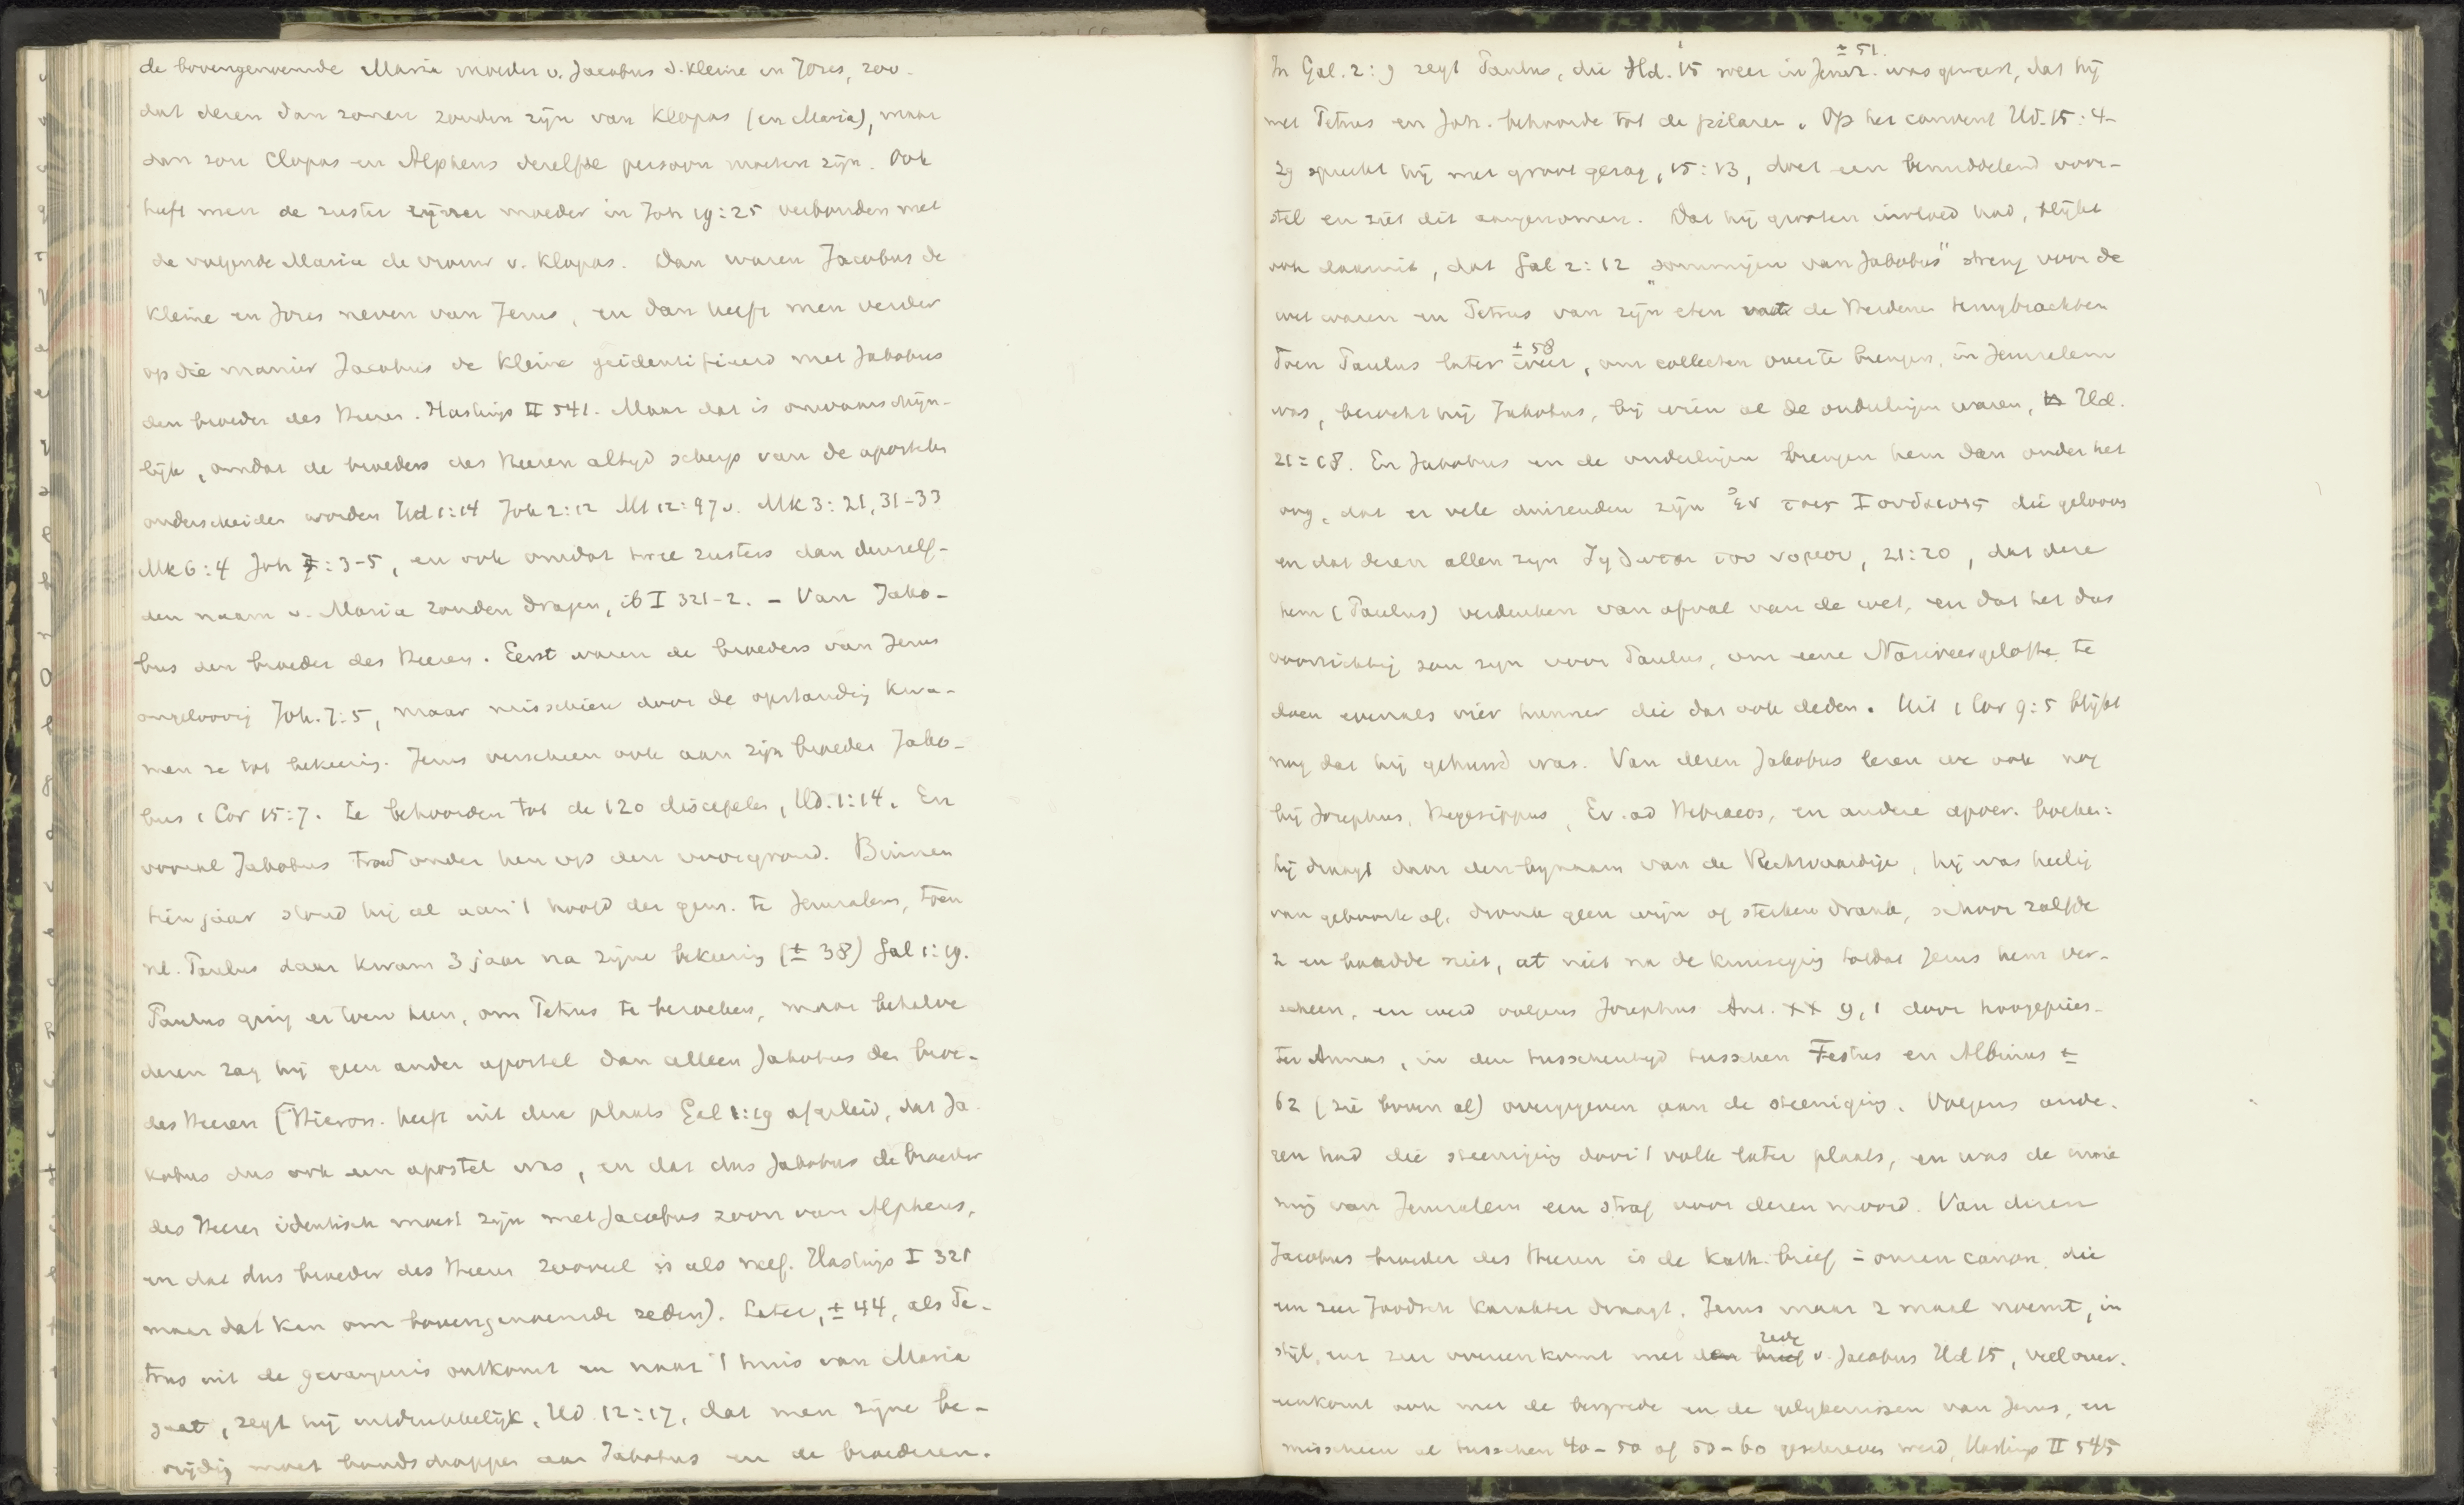 de bovengenoemde Maria moeder v. Jacobus d. kleine en Joses, zoo-
dat dezen dan zonen zouden zijn van Klopas (en Maria), maar
dan zou Clopas en Alpheus dezelfde persoon moeten zijn. Ook
heeft men de zuster zijner moeder in Joh 19:25 verbonden met
de volgende Maria de vrouw v. Klopas. Dan waren Jacobus de
kleine en Joses neven van Jezus, en dan heeft men verder
op die manier Jacobus de kleine geidentificeerd met Jakobus
den broeder des Heeren. Hastings II 541. Maar dat is onwaarschijn-
lijk, omdat de broeders des Heeren altijd scherp van de apostelen
onderscheiden worden Hd 1:14 Joh 2:12 Mt 12:47v. Mk 3:21, 31-33
Mk 6:4 Joh 7:3-5, en ook omdat twee zusters dan denzelf-
den naam v. Maria zouden dragen, ib I 321-2. - Van Jako-
bus den broeder des Heeren. Eerst waren de broeders van Jezus
ongeloovig Joh. 7:5, maar misschien door de opstanding kwa-
men ze tot bekeering. Jezus verscheen ook aan zijn broeder Jako-
bus 1 Cor 15:7. Ze behoorden tot de 120 discipelen, Hd. 1:14. En
vooral Jakobus trad onder hen op den voorgrond. Binnen
tien jaar stond hij al aan 't hoofd der gem. te Jeruzalem, toen
nl. Paulus daar kwam 3 jaar na zijne bekeering (± 38) Gal 1:19.
Paulus ging er toen heen, om Petrus te bezoeken, maar behalve
dezen zag hij geen ander apostel dan alleen Jakobus den broe-
des Heeren [Hieron. heeft uit deze plaats Gal 1:19 afgeleid, dat Ja-
kobus dus ook een apostel was, en dat dus Jakobus de broeder
des Heeren identisch moest zijn met Jacobus zoon van Alpheus,
en dat dus broeder des Heeren zooveel is als neef. Hastings I 321
maar dat kan om bovengenoemde reden). Later, ± 44, als Pe-
trus uit de gevangenis ontkomt en naar 't huis van Maria
gaat, zegt hij uitdrukkelijk, Hd 12:17, dat men zijne be-
vrijding moet boodschappen aan Jakobus en de broederen.
± 51.
In Gal. 2:9 zegt Paulus, die Hd. 15 weer in Jeruz. was geweest, dat hij
met Petrus en Joh. behoorde tot de pilaren. Op het convent Hd. 15:4-
29 spreekt hij met groot gezag, 15:13, doet een bemiddelend voor-
stel en ziet dit aangenomen. Dat hij grooten invloed had, blijkt
ook daaruit, dat Gal 2:12 "sommigen van Jakobus" streng voor de
wet waren en Petrus van zijn eten met de Heidenen terugbrachten
± 58
Toen Paulus later weer, om collecten over te brengen, in Jeruzalem
was, bezocht hij Jakobus, bij wien al de ouderlingen waren, Hd.
21:18. En Jakobus en de ouderlingen brengen hem dan onder het
oog, dat er vele duizenden zijn ἐν τοις Ιουδαιοις die gelooven
en dat dezen allen zijn ζηλωται του νομου, 21:20, dat deze
hem (Paulus) verdenken van afval van de wet, en dat het dus
voorzichtig zou zijn voor Paulus, om eene Nazireergelofte te
doen evenals vier hunner die dat ook deden. Uit 1 Cor 9:5 blijkt
nog dat hij gehuwd was. Van dezen Jakobus lezen we ook nog
bij Josephus, Hegesippus, Ev. ad Hebraeos, en andere apocr. boeken:
hij draagt daar den bijnaam van de Rechtvaardige, hij was heilig
van geboorte af, dronk geen wijn of sterken drank, schoor zalfde
z en baadde niet, at niet na de kruisiging totdat Jezus hem ver-
scheen, en werd volgens Josephus Ant. XX 9,1 door hoogepries-
ter Annas, in den tusschentijd tusschen Festus en Albinus ±
62 (zie boven al) overgegeven aan de steeniging. Volgens ande-
ren had die steeniging door 't volk later plaats, en was de inne-
ming van Jeruzalem een straf voor dezen moord. Van dezen
Jacobus broeder des Heeren is de Kath. brief in onzen canon, die
een zeer Joodsch karakter draagt. Jezus maar 2 maal noemt, in
rede
stijl, enz zeer overeenkomt met den brief v. Jacobus Hd 15, veel over-
eenkomt ook met de bergrede en de gelijkenissen van Jezus, en
misschien al tusschen 40-50 of 50-60 geschreven werd, Hastings II 545